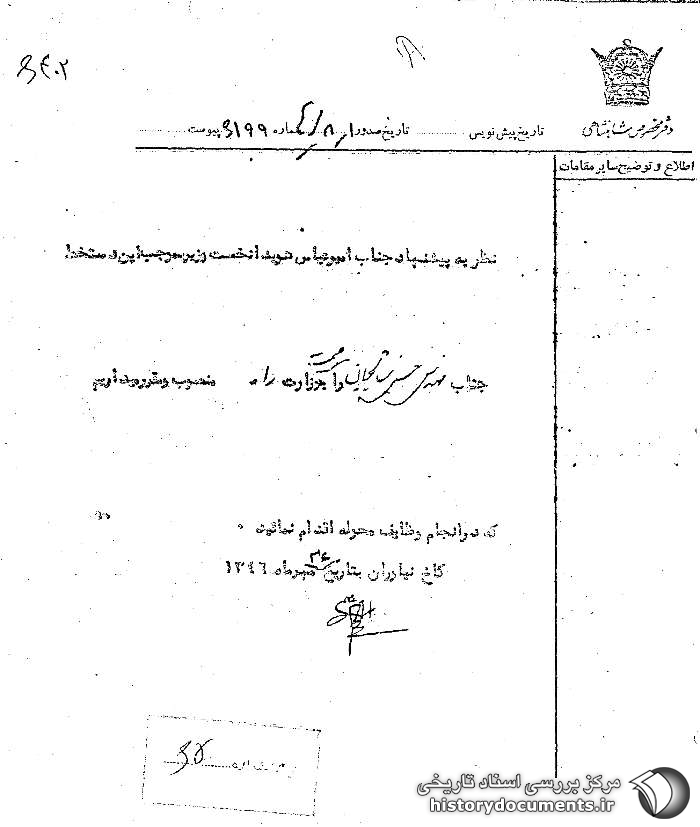 ۳۴۰۲
دفتر مخصوص شاهنشاهی
تاریخ پیش نویس ............ تاریخ صدور ۸/۱ شماره ۳۱۹۹ پیوست
اطلاع و توضیح سایر مقامات
نظر به پیشنهاد جناب امیرعباس هویدا نخست وزیر بموجب این دستخط
جناب مهندس حسن شالچیان را بوزارت راه منصوب و مقرر میداریم
که در انجام وظایف محوله اقدام نمایند .
کاخ نیاوران بتاریخ مهرماه ۱۳۴۶
مرکز بررسی اسناد تاریخی
historydocuments.ir